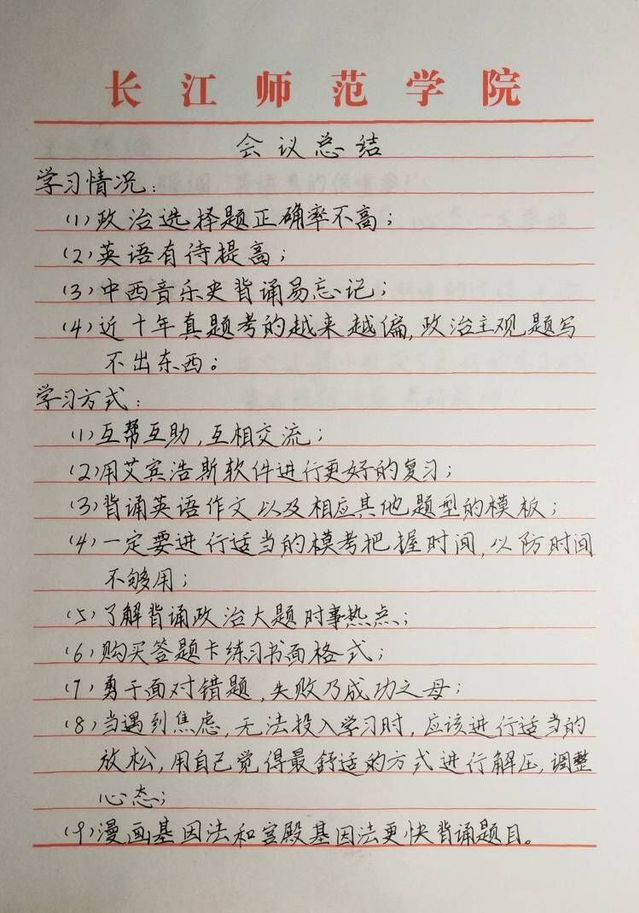 长江师范学院
会议总结
学习情况:
(1)政治选择题正确率不高;
(2)英语有待提高;
(3)中西音乐史背诵易忘记;
(4)近十年真题考的越来越偏,政治主观题写
不出东西。
学习方式:
(1)互帮互助,互相交流;
(2)用艾宾浩斯软件进行更好的复习;
(3)背诵英语作文以及相应其他题型的模板;
(4)一定要进行适当的模考把握时间,以防时间
不够用;
(5)了解背诵政治大题时事热点;
(6)购买答题卡练习书面格式;
(7)勇于面对错题,失败乃成功之母;
(8)当遇到焦虑,无法投入学习时,应该进行适当的
放松,用自己觉得最舒适的方式进行解压,调整
心态;
(9)漫画基因法和宫殿基因法更快背诵题目。